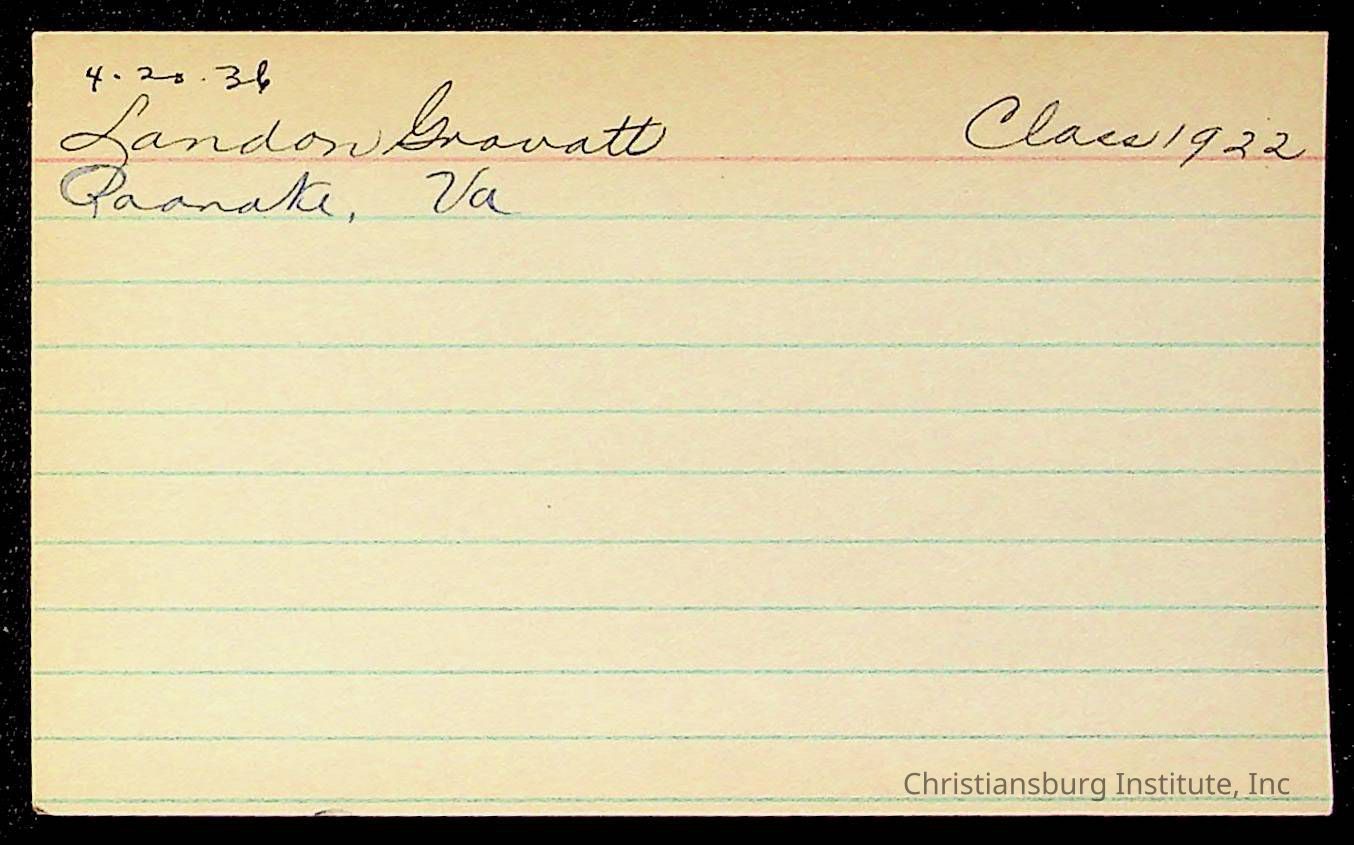 4-20-36
Landon Gravatt Class 1922
Roanoke, Va
Christiansburg Institute, Inc